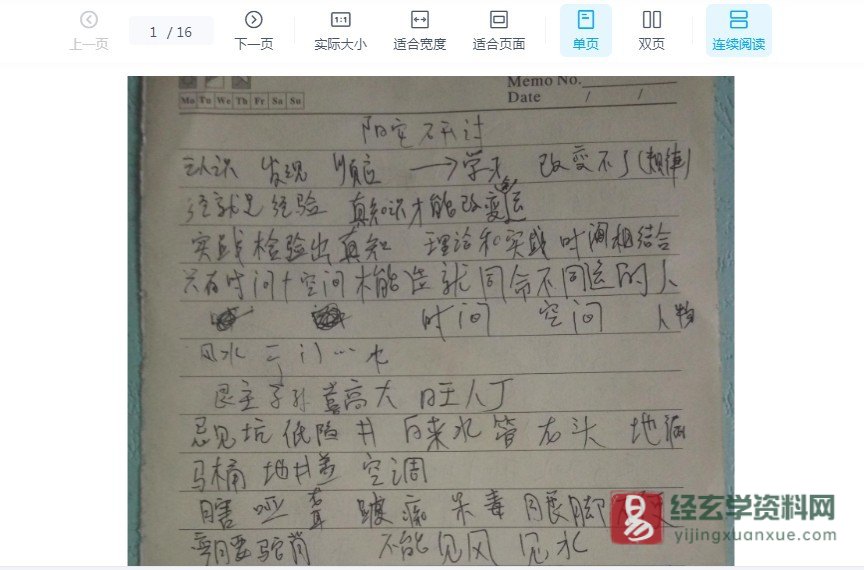 上一页 1 / 16 下一页 实际大小 适合宽度 适合页面 单页 双页 连续阅读
Memo No.
Mo Tu We Th Fr Sa Su
Date / /
阳宅研讨
认识 发现 顺应 →学习 改变不了(规律)
经就是经验 真知识才能改变命运
实践检验出真知 理论和实践时间相结合
只有时间+空间才能造就同命不同运的人
时间 空间 人物
风水 水
艮主子孙喜高大 旺人丁
忌见坑 低陷 井 自来水管 石头 地漏
马桶 地井盖 空调
瞎 哑 聋 跛 痴 呆 毒 腿脚
弯腰驼背 不能见风 见水
易 经玄学资料网
yijingxuanxue.com